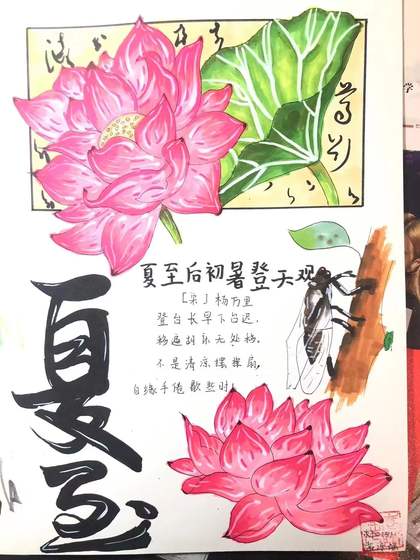 夏至后初暑登天观
[宋]杨万里
登台长早下台迟,
移遍胡床无处移,
不是清凉摆挥扇,
自缘手倦歇些时。
夏至